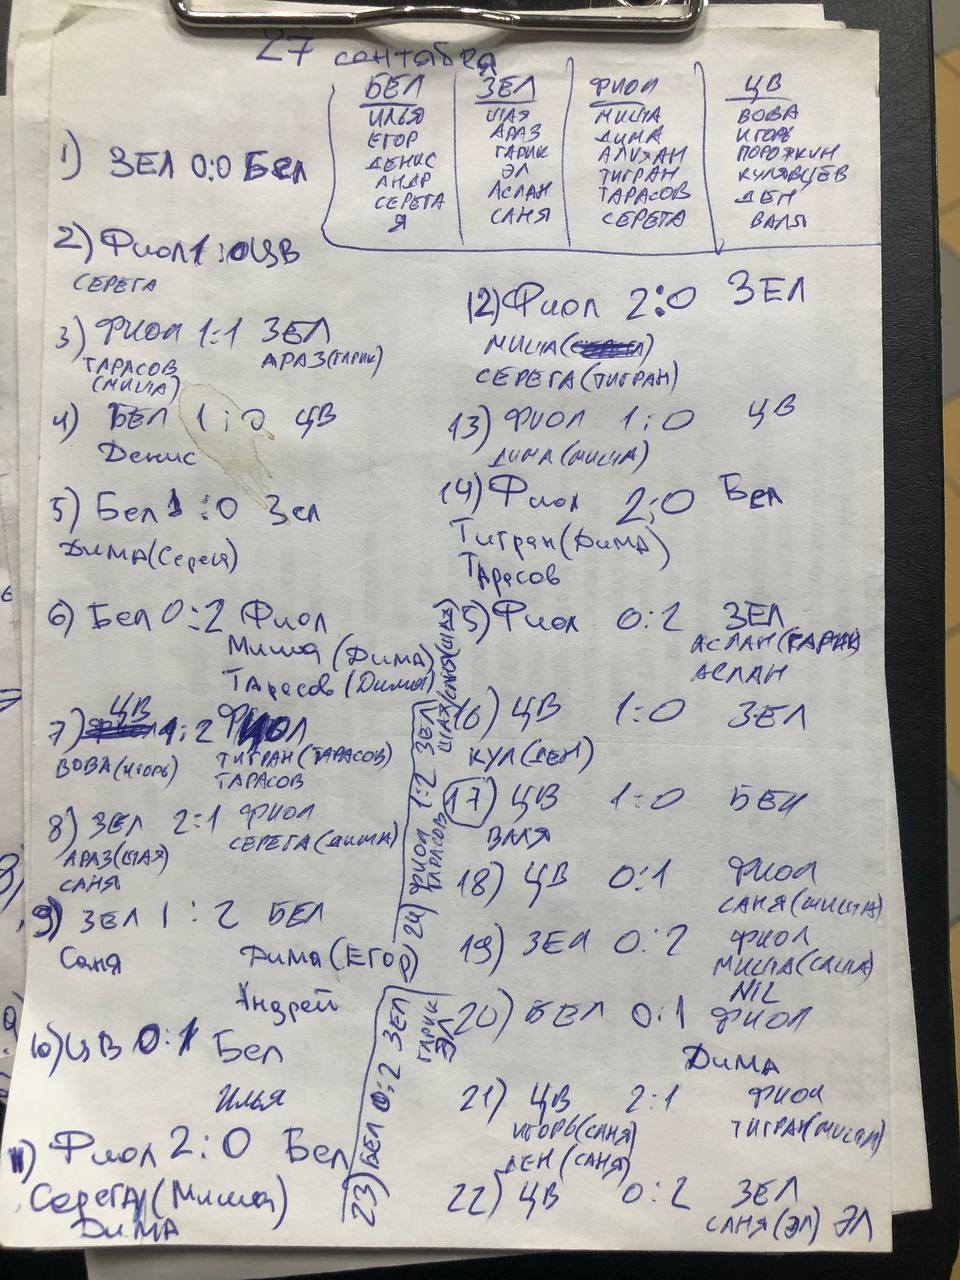 27 сентабря
БЕЛ ЗЕЛ ФИОЛ ЦВ
ИЛЬЯ ШАЯ МИША ВОВА
ЕГОР АРАЗ ДИМА ИГОРЬ
ДЕНИС ГАРИК АЛИХАН ПОРОЖКИН
АНДР ЭЛ ТИГРАН КУЛЯВЦЕВ
СЕРЕГА АСЛАН ТАРАСОВ ДЕН
Я САНЯ СЕРЕГА ВАЛЯ
1) ЗЕЛ 0:0 Бел
2) Фиол 1:0 ЦВ
СЕРЕГА
3) ФИОЛ 1:1 ЗЕЛ
ТАРАСОВ АРАЗ (ГАРИК)
(МИША)
4) БЕЛ 1:0 ЦВ
Денис
5) Бел 1:0 Зел
Дима (Серега)
6) Бел 0:2 Фиол
Миша (Дима)
Тарасов (Дима)
7) ЦВ 1:2 ФИОЛ
ВОВА (ИГОРЬ) ТИГРАН (ТАРАСОВ)
ТАРАСОВ
8) ЗЕЛ 2:1 ФИОЛ
АРАЗ (ШАЯ) СЕРЕГА (МИША)
САНЯ
9) ЗЕЛ 1:2 БЕЛ
Саня Дима (ЕГОР)
Андрей
10) ЦВ 0:1 Бел
Илья
11) Фиол 2:0 Бел
Серега (Миша)
Дима
12) Фиол 2:0 ЗЕЛ
МИША
СЕРЕГА (ТИГРАН)
13) ФИОЛ 1:0 ЦВ
ДИМА (МИША)
14) Фиол 2:0 Бел
Тигран (Дима)
Тарасов
15) Фиол 0:2 ЗЕЛ
АСЛАН (ГАРИК)
АСЛАН
16) ЦВ 1:0 ЗЕЛ
КУЛ (ДЕН)
17) ЦВ 1:0 БЕЛ
ВАЛЯ
18) ЦВ 0:1 ФИОЛ
САНЯ (МИША)
19) ЗЕЛ 0:2 ФИОЛ
МИША (САША)
NIL
20) БЕЛ 0:1 ФИОЛ
Дима
21) ЦВ 2:1 ФИОЛ
ИГОРЬ (САНЯ) ТИГРАН (МИША)
ДЕН (САНЯ)
22) ЦВ 0:2 ЗЕЛ
САНЯ (ЭЛ) ЭЛ
23) БЕЛ 0:2 ЗЕЛ
ГАРИК
ЭЛ
24) ФИОЛ 1:2 ЗЕЛ
ТАРАСОВ ШАЯ САНЯ (ШАЯ)